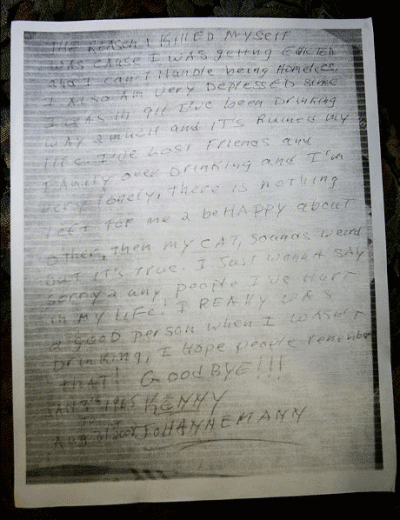 THE REASON I KILLED MYSELF
WAS CAUSE I WAS getting EVICTED
and I can't Handle being Homeless.
I Also Am very DEPRESSED since
I've been Drinking
WAY 2 much and IT'S RUINED MY
life. I've Lost Friends and
FAmily over Drinking and I'm
very lonely, there is nothing
left for me 2 be HAPPY about
other, then my CAT, Sounds weird
but it's true. I Just wanna SAY
Sorry 2 any people I've Hurt
in MY Life! I REALly WAS
a gooD person when I WASN'T
Drinking, I Hope people remember
that! GoodBYE!!!
1965 KENNY
JOHANNEMANN